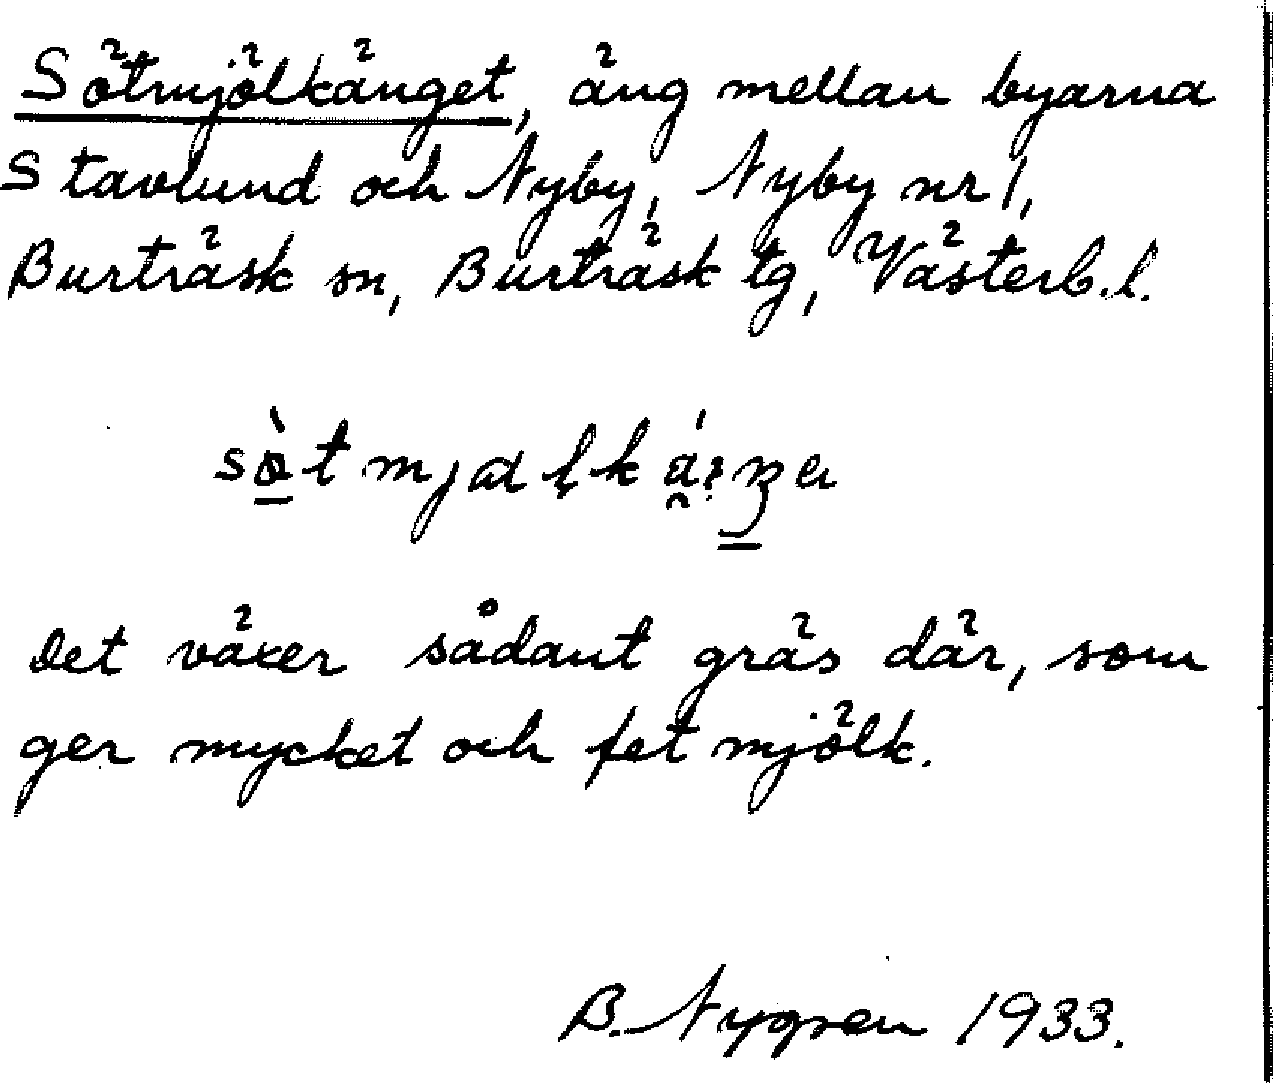 Sötmjölkänget, äng mellan byarna
Stavlund och Nyby, Nyby nr 1,
Burträsk sn, Burträsk tg, Västerb.l.
det växer sådant gräs där, som
ger mycket och fet mjölk.
B. Nygren 1933.